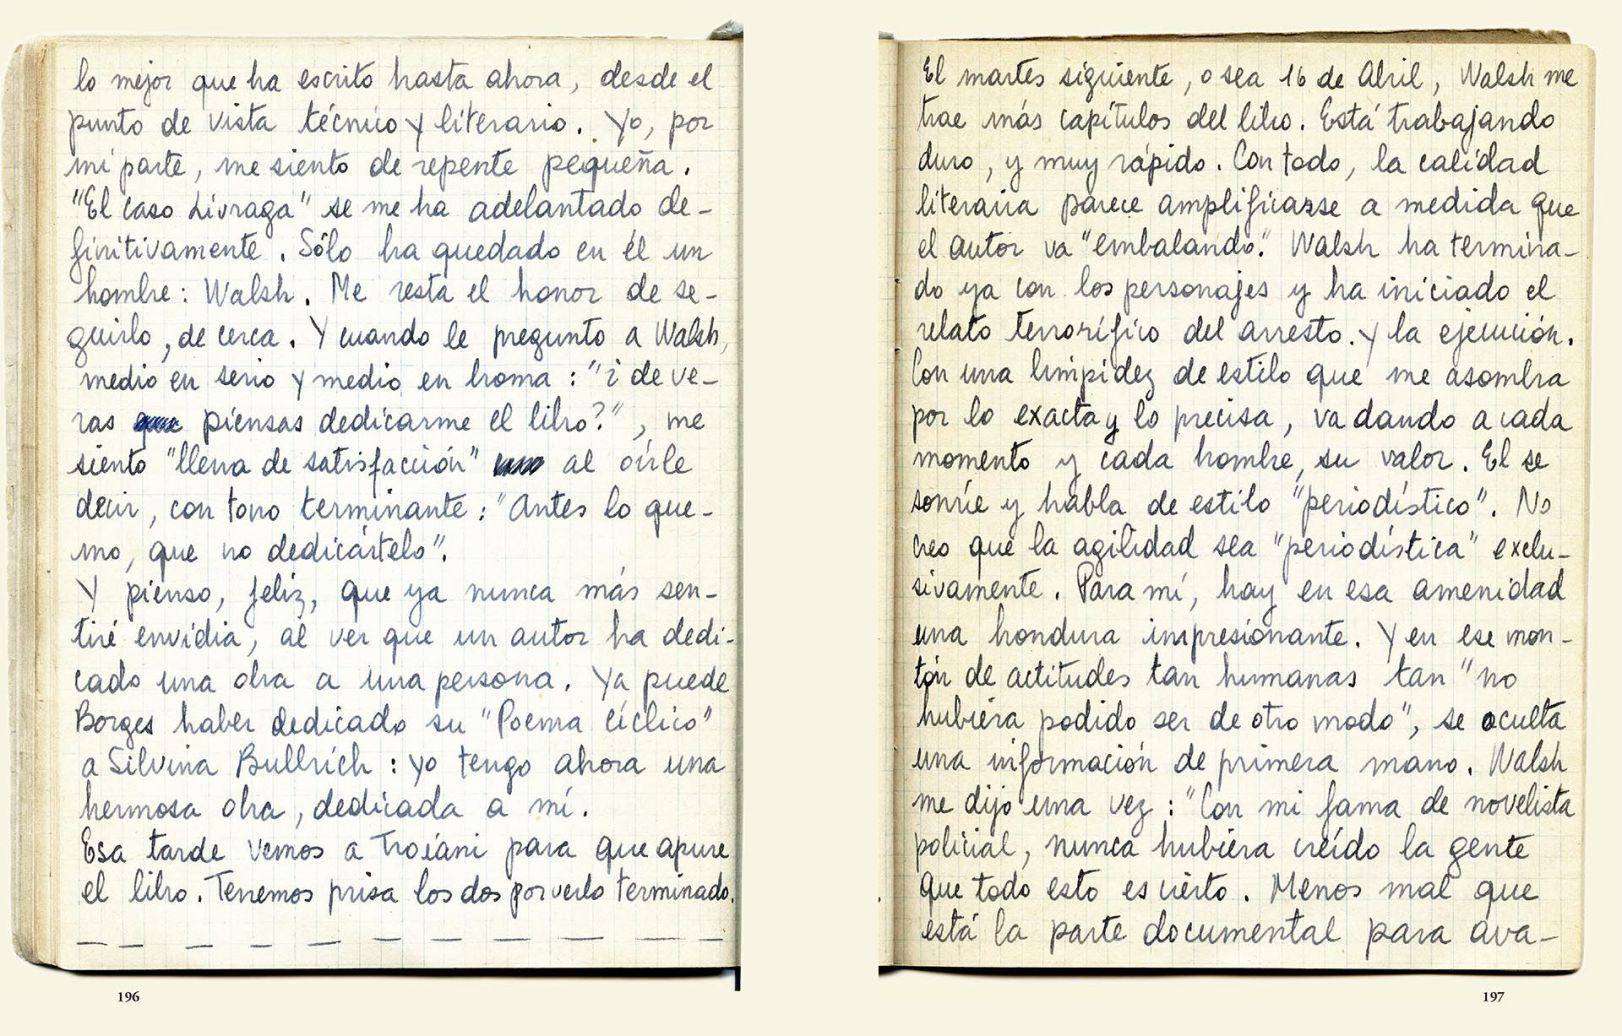 lo mejor que ha escrito hasta ahora, desde el
punto de vista técnico y literario. Yo, por
mi parte, me siento de repente pequeña.
"El caso Livraga" se me ha adelantado de-
finitivamente. Sólo ha quedado en él un
hombre: Walsh. Me resta el honor de se-
guirlo, de cerca. Y cuando le pregunto a Walsh,
medio en serio y medio en broma: "¿de ve-
ras que piensas dedicarme el libro?", me
siento "llena de satisfacción" al oírle
decir, con tono terminante: "Antes lo que-
mo, que no dedicártelo".
Y pienso, feliz, que ya nunca más sen-
tiré envidia, al ver que un autor ha dedi-
cado una obra a una persona. Ya puede
Borges haber dedicado su "Poema cíclico"
a Silvina Bullrich: yo tengo ahora una
hermosa obra, dedicada a mí.
Esa tarde vemos a Troiani para que apure
el libro. Tenemos prisa los dos por verlo terminado.
— — — — — — — — — — —
196
El martes siguiente, o sea 16 de Abril, Walsh me
trae más capítulos del libro. Está trabajando
duro, y muy rápido. Con todo, la calidad
literaria parece amplificarse a medida que
el autor va "embalando". Walsh ha termina-
do ya con los personajes y ha iniciado el
relato terrorífico del arresto. y la ejecución.
Con una limpidez de estilo que me asombra
por lo exacta y lo precisa, va dando a cada
momento y cada hombre, su valor. El se
sonríe y habla de estilo "periodístico". No
creo que la agilidad sea "periodística" exclu-
sivamente. Para mí, hay en esa amenidad
una hondura impresionante. Y en ese mon-
tón de actitudes tan humanas tan "no
hubiera podido ser de otro modo", se oculta
una información de primera mano. Walsh
me dijo una vez: "Con mi fama de novelista
policial, nunca hubiera creído la gente
que todo esto es cierto. Menos mal que
está la parte documental para ava-
197